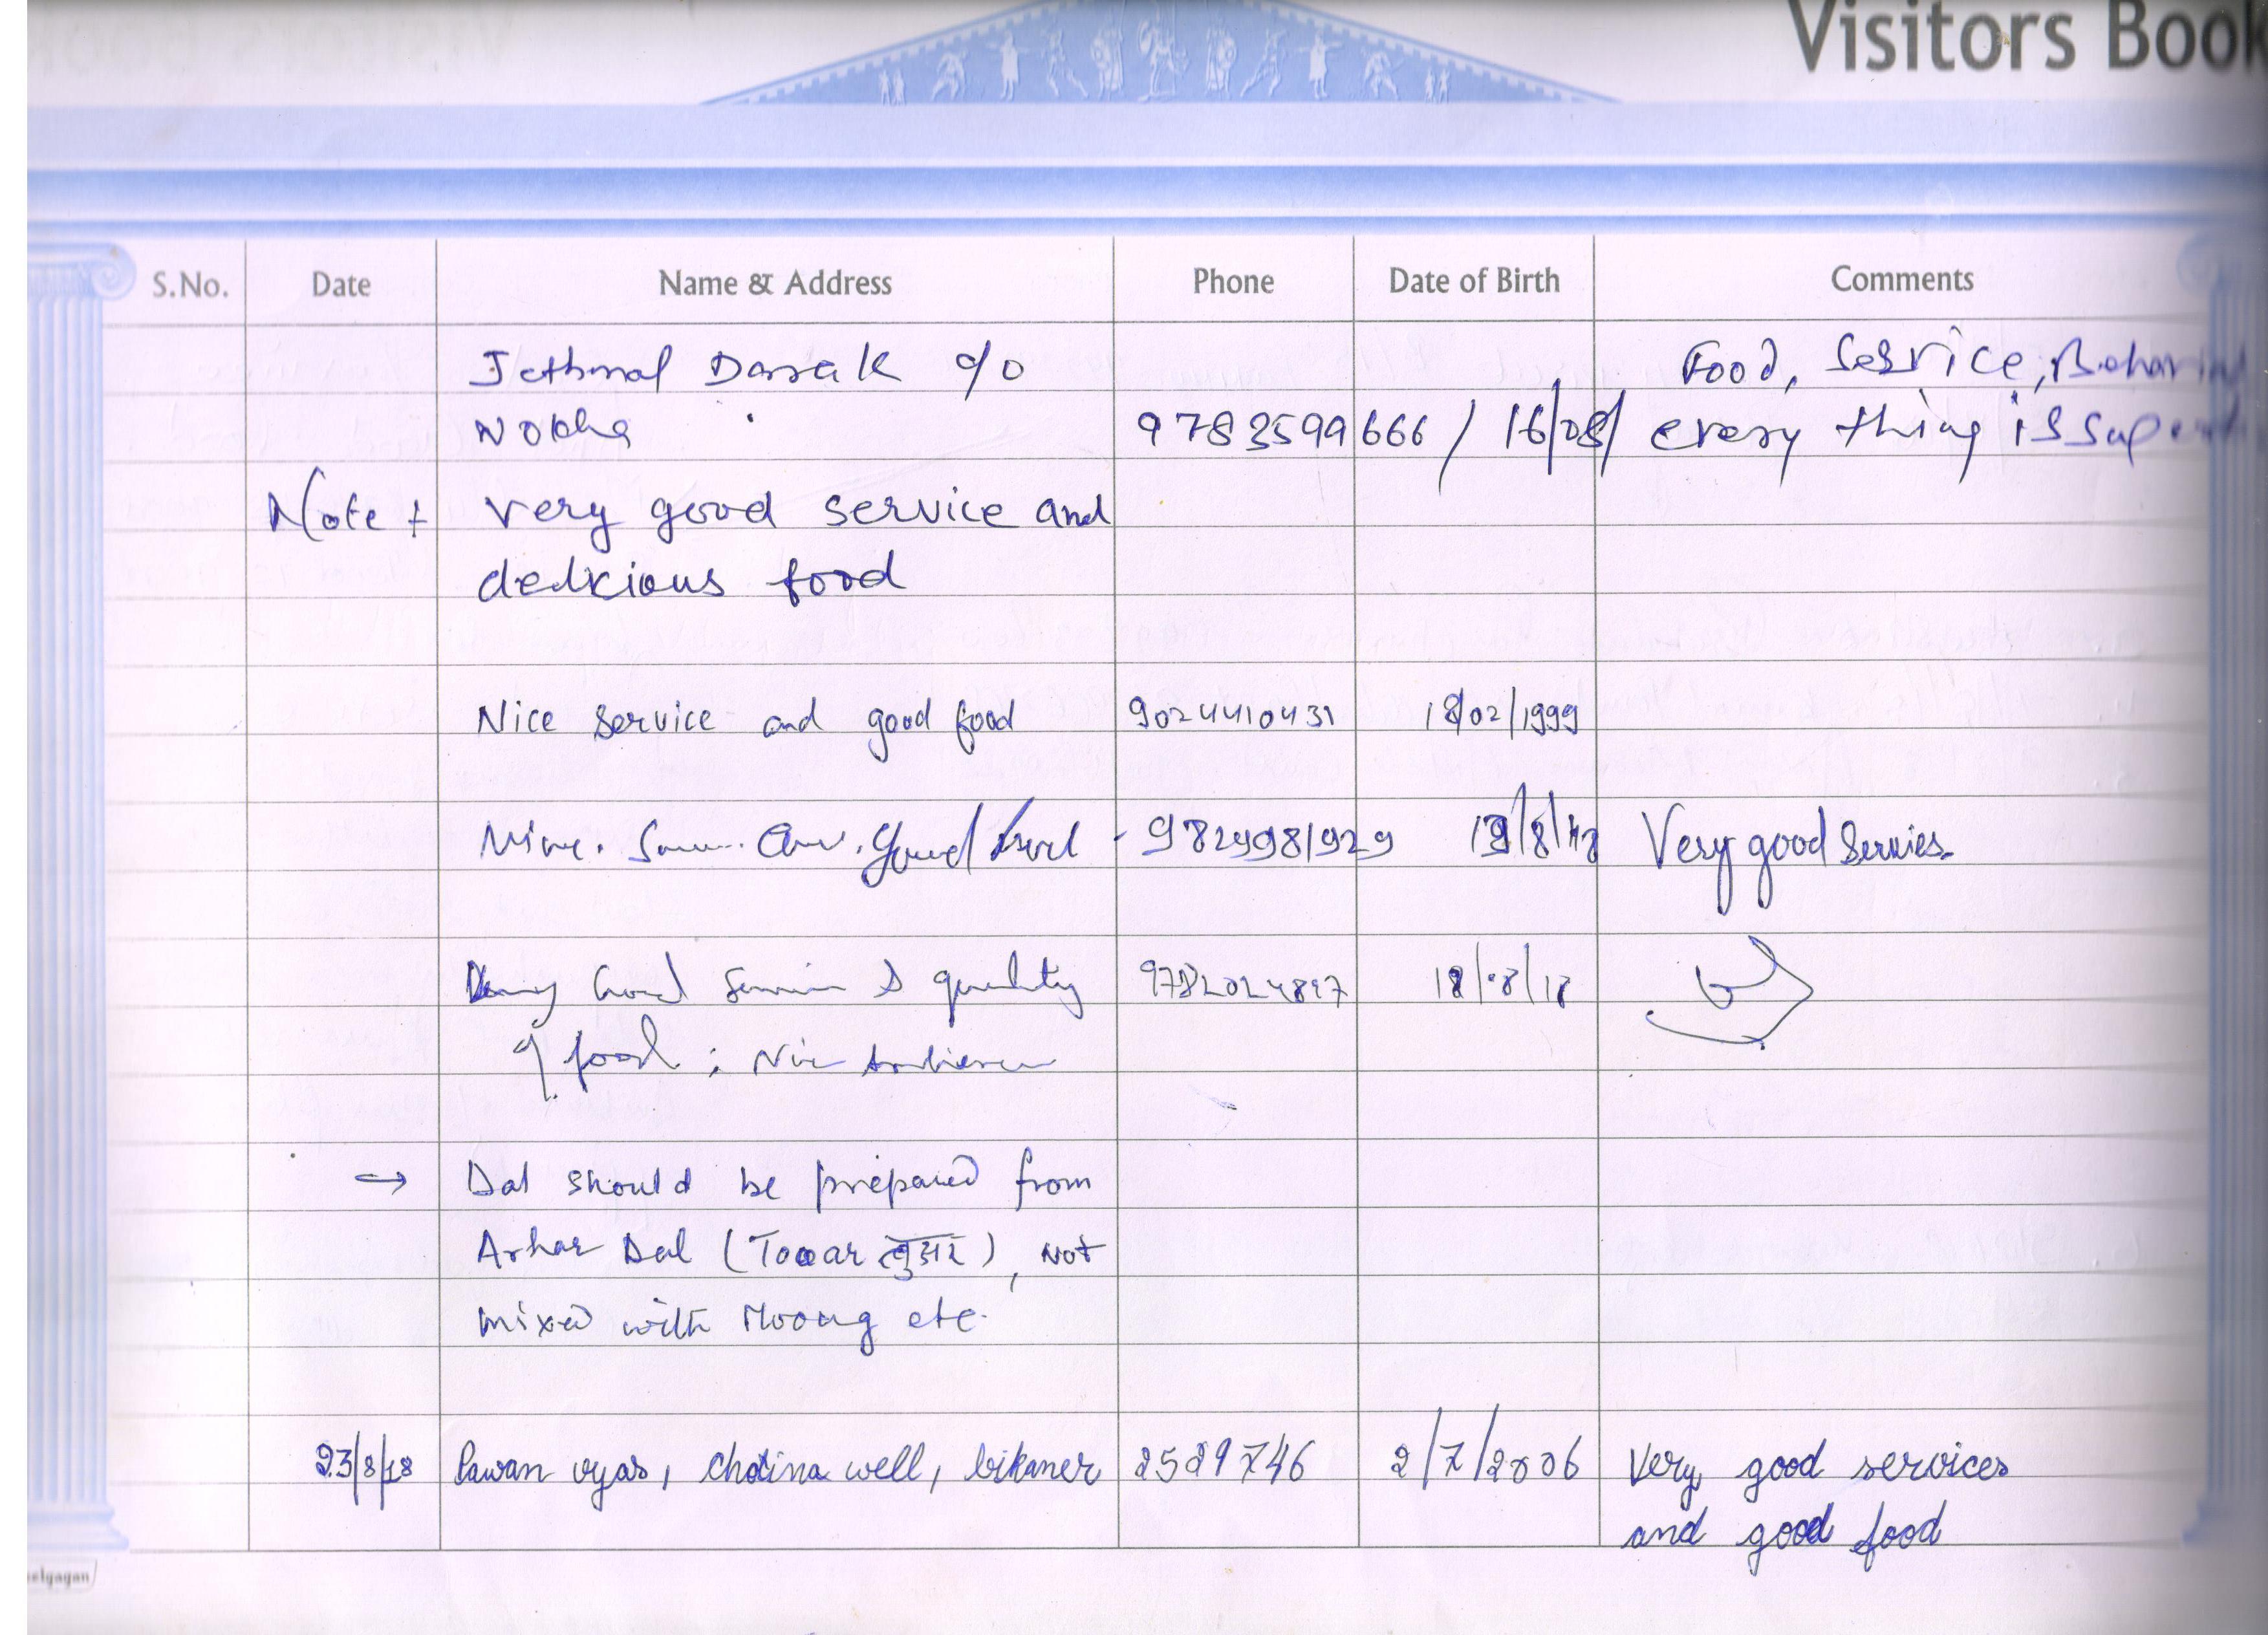 Visitors Book
S.No. Date Name & Address Phone Date of Birth Comments
Jethmal Darak c/o Food, Service, Behavi
Nokha 9783599666 / 16/08/ every thing is Super
Note very good service and
delicious food
Nice service and good food 9024410431 18/02/1999
good 9829981929 /8/18 Very good Servies
Good & quality 18/8/18
of food ; Nice
→ Dal should be prepared from
Arhar Dal (Tooar तुआर), Not
mixed with Moong etc.
23/8/18 Pawan vyas, chotina well, bikaner 2529746 2/7/2006 Very good services
and good food
elgagan